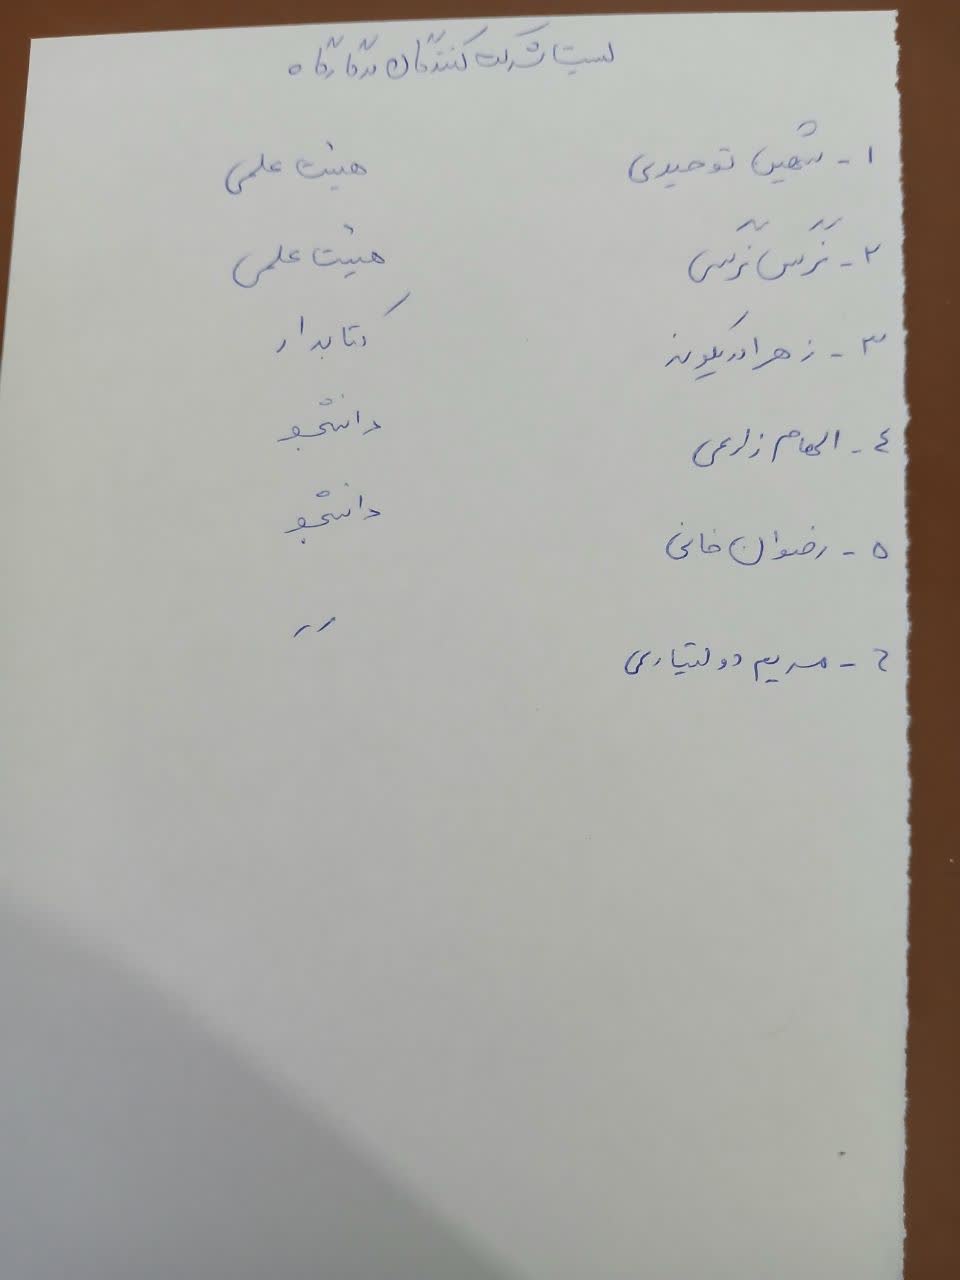 لیست شرکت کنندگان در کارگاه
۱- شهین توحیدی هیئت علمی
۲- نرگس نرگسی هیئت علمی
۳- زهرا کتابدار
٤- الهام زارعی دانشجو
۵- رضوان خانی دانشجو
٦- مریم دولتیاری 〃